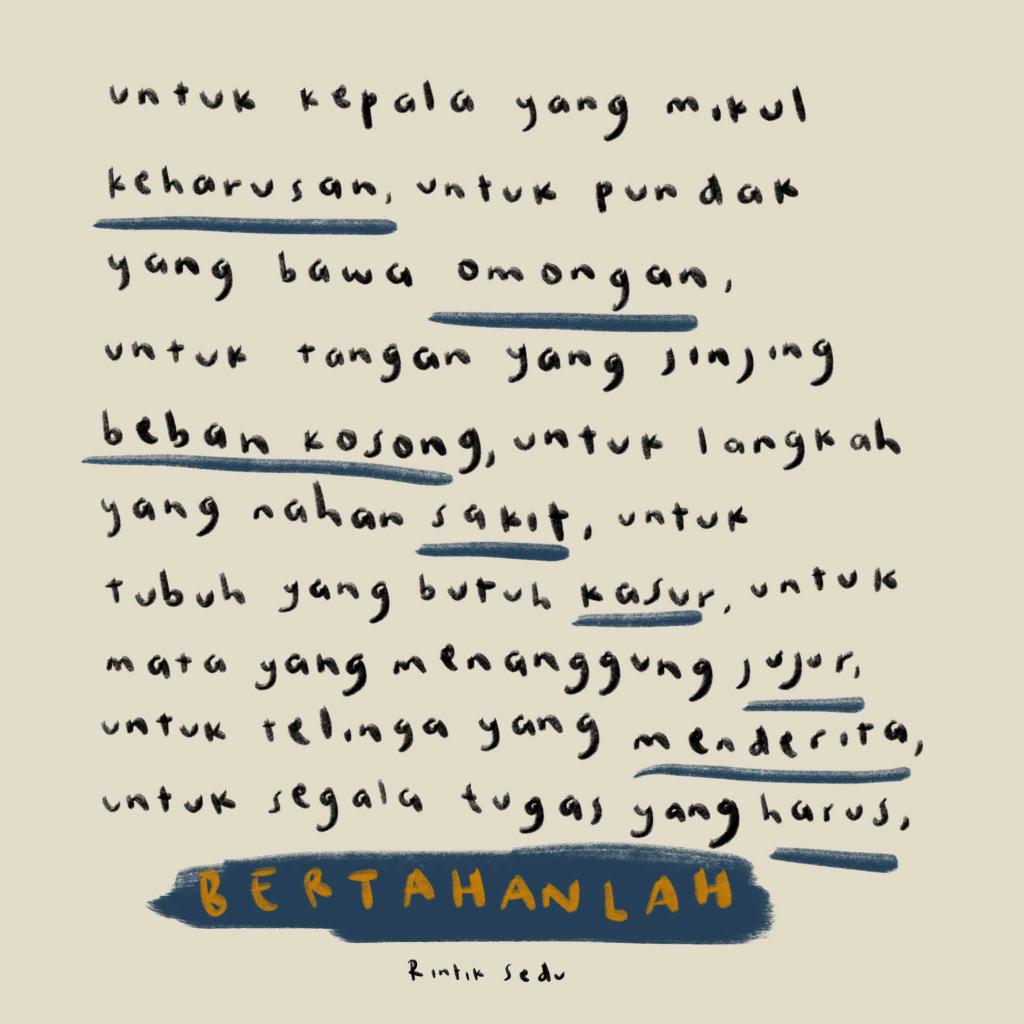 untuk kepala yang mikul
keharusan, untuk pundak
yang bawa omongan,
untuk tangan yang jinjing
beban kosong, untuk langkah
yang nahan sakit, untuk
tubuh yang butuh kasur, untuk
mata yang menanggung jujur,
untuk telinga yang menderita,
untuk segala tugas yang harus,
BERTAHANLAH
Rintik Sedu